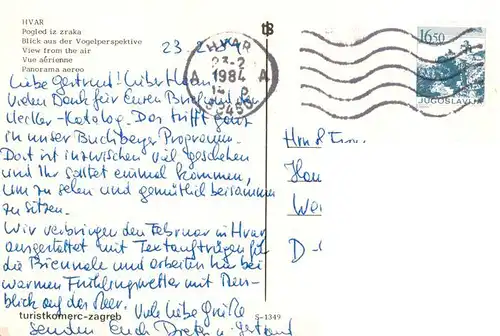 HVAR
Pogled iz zraka
Blick aus der Vogelperspektive
View from the air
Vue aérienne
Panorama aereo
23 2 84
HVAR
23-2
1984
A A
58450
16.50
JUGOSLAVIJA
Liebe Gertrud! Lieber
Vielen Dank für Euren Brief und den
Uecker-Katalog. Das trifft ganz
in unser Buchberger Programm.
Dort ist inzwischen viel geschehen
und Ihr solltet einmal kommen,
um zu sehen und gemütlich beisammen
zu sitzen.
Wir verbringen den Februar in Hvar
ausgestattet mit Textaufträgen für
die Biennale und arbeiten hier bei
warmen Frühlingswetter mit
blick auf das Meer. Viele liebe Grüße
senden Euch
turistkomerc-zagreb
S-1349
D-